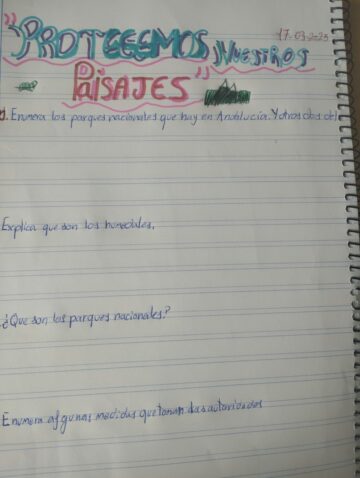 "PROTEGEMOS NUESTROS
17-03-2023
PAISAJES"
1. Enumera los parques nacionales que hay en Andalucía. Y otros dos de
Explica que son los humedales.
¿Que son los parques nacionales?
Enumera algunas medidas que toman las autoridades